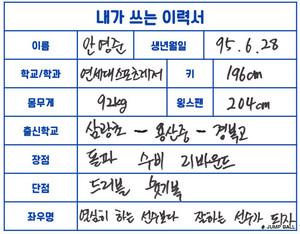 내가 쓰는 이력서
이름 안영준 생년월일 95.6.28
학교/학과 연세대스포츠레저 키 196cm
몸무게 92kg 윙스팬 204cm
출신학교 삼광초 - 용산중 - 경복고
장점 돌파 수비 리바운드
단점 드리블 훅기복
좌우명 열심히 하는 선수보다 잘하는 선수가 되자
JUMP BALL